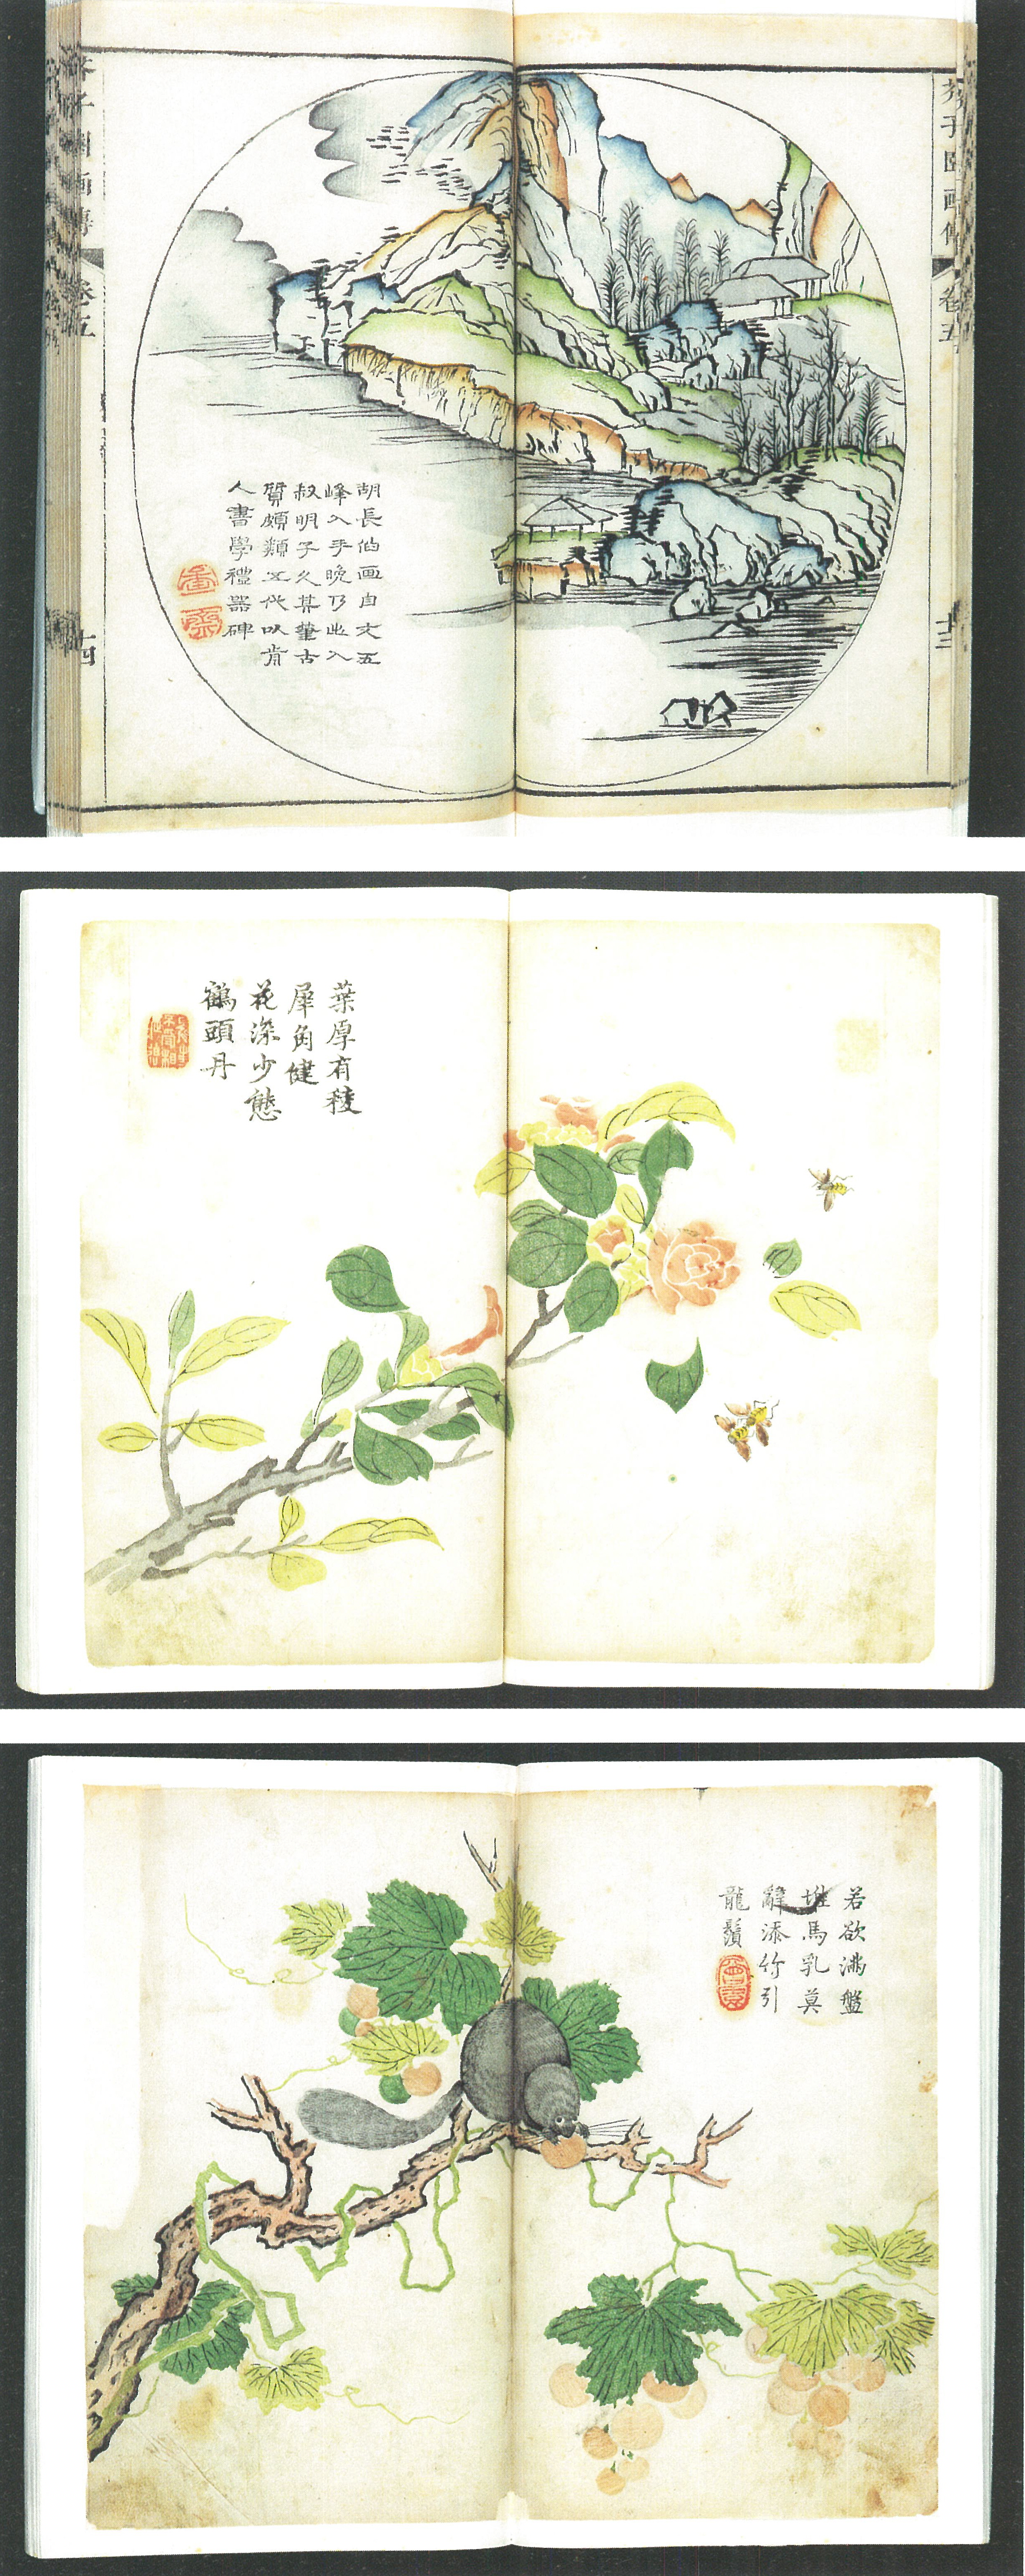 芥子園畫傳
卷五
胡長伯画自文五
峰入手晚乃出入
叔明子久其筆古
質頗類五代以前
人書學禮器碑
十四
十三
葉厚有稜
犀角健
花深少態
鶴頭丹
若欲滿盤
堆馬乳莫
辭添竹引
龍鬚